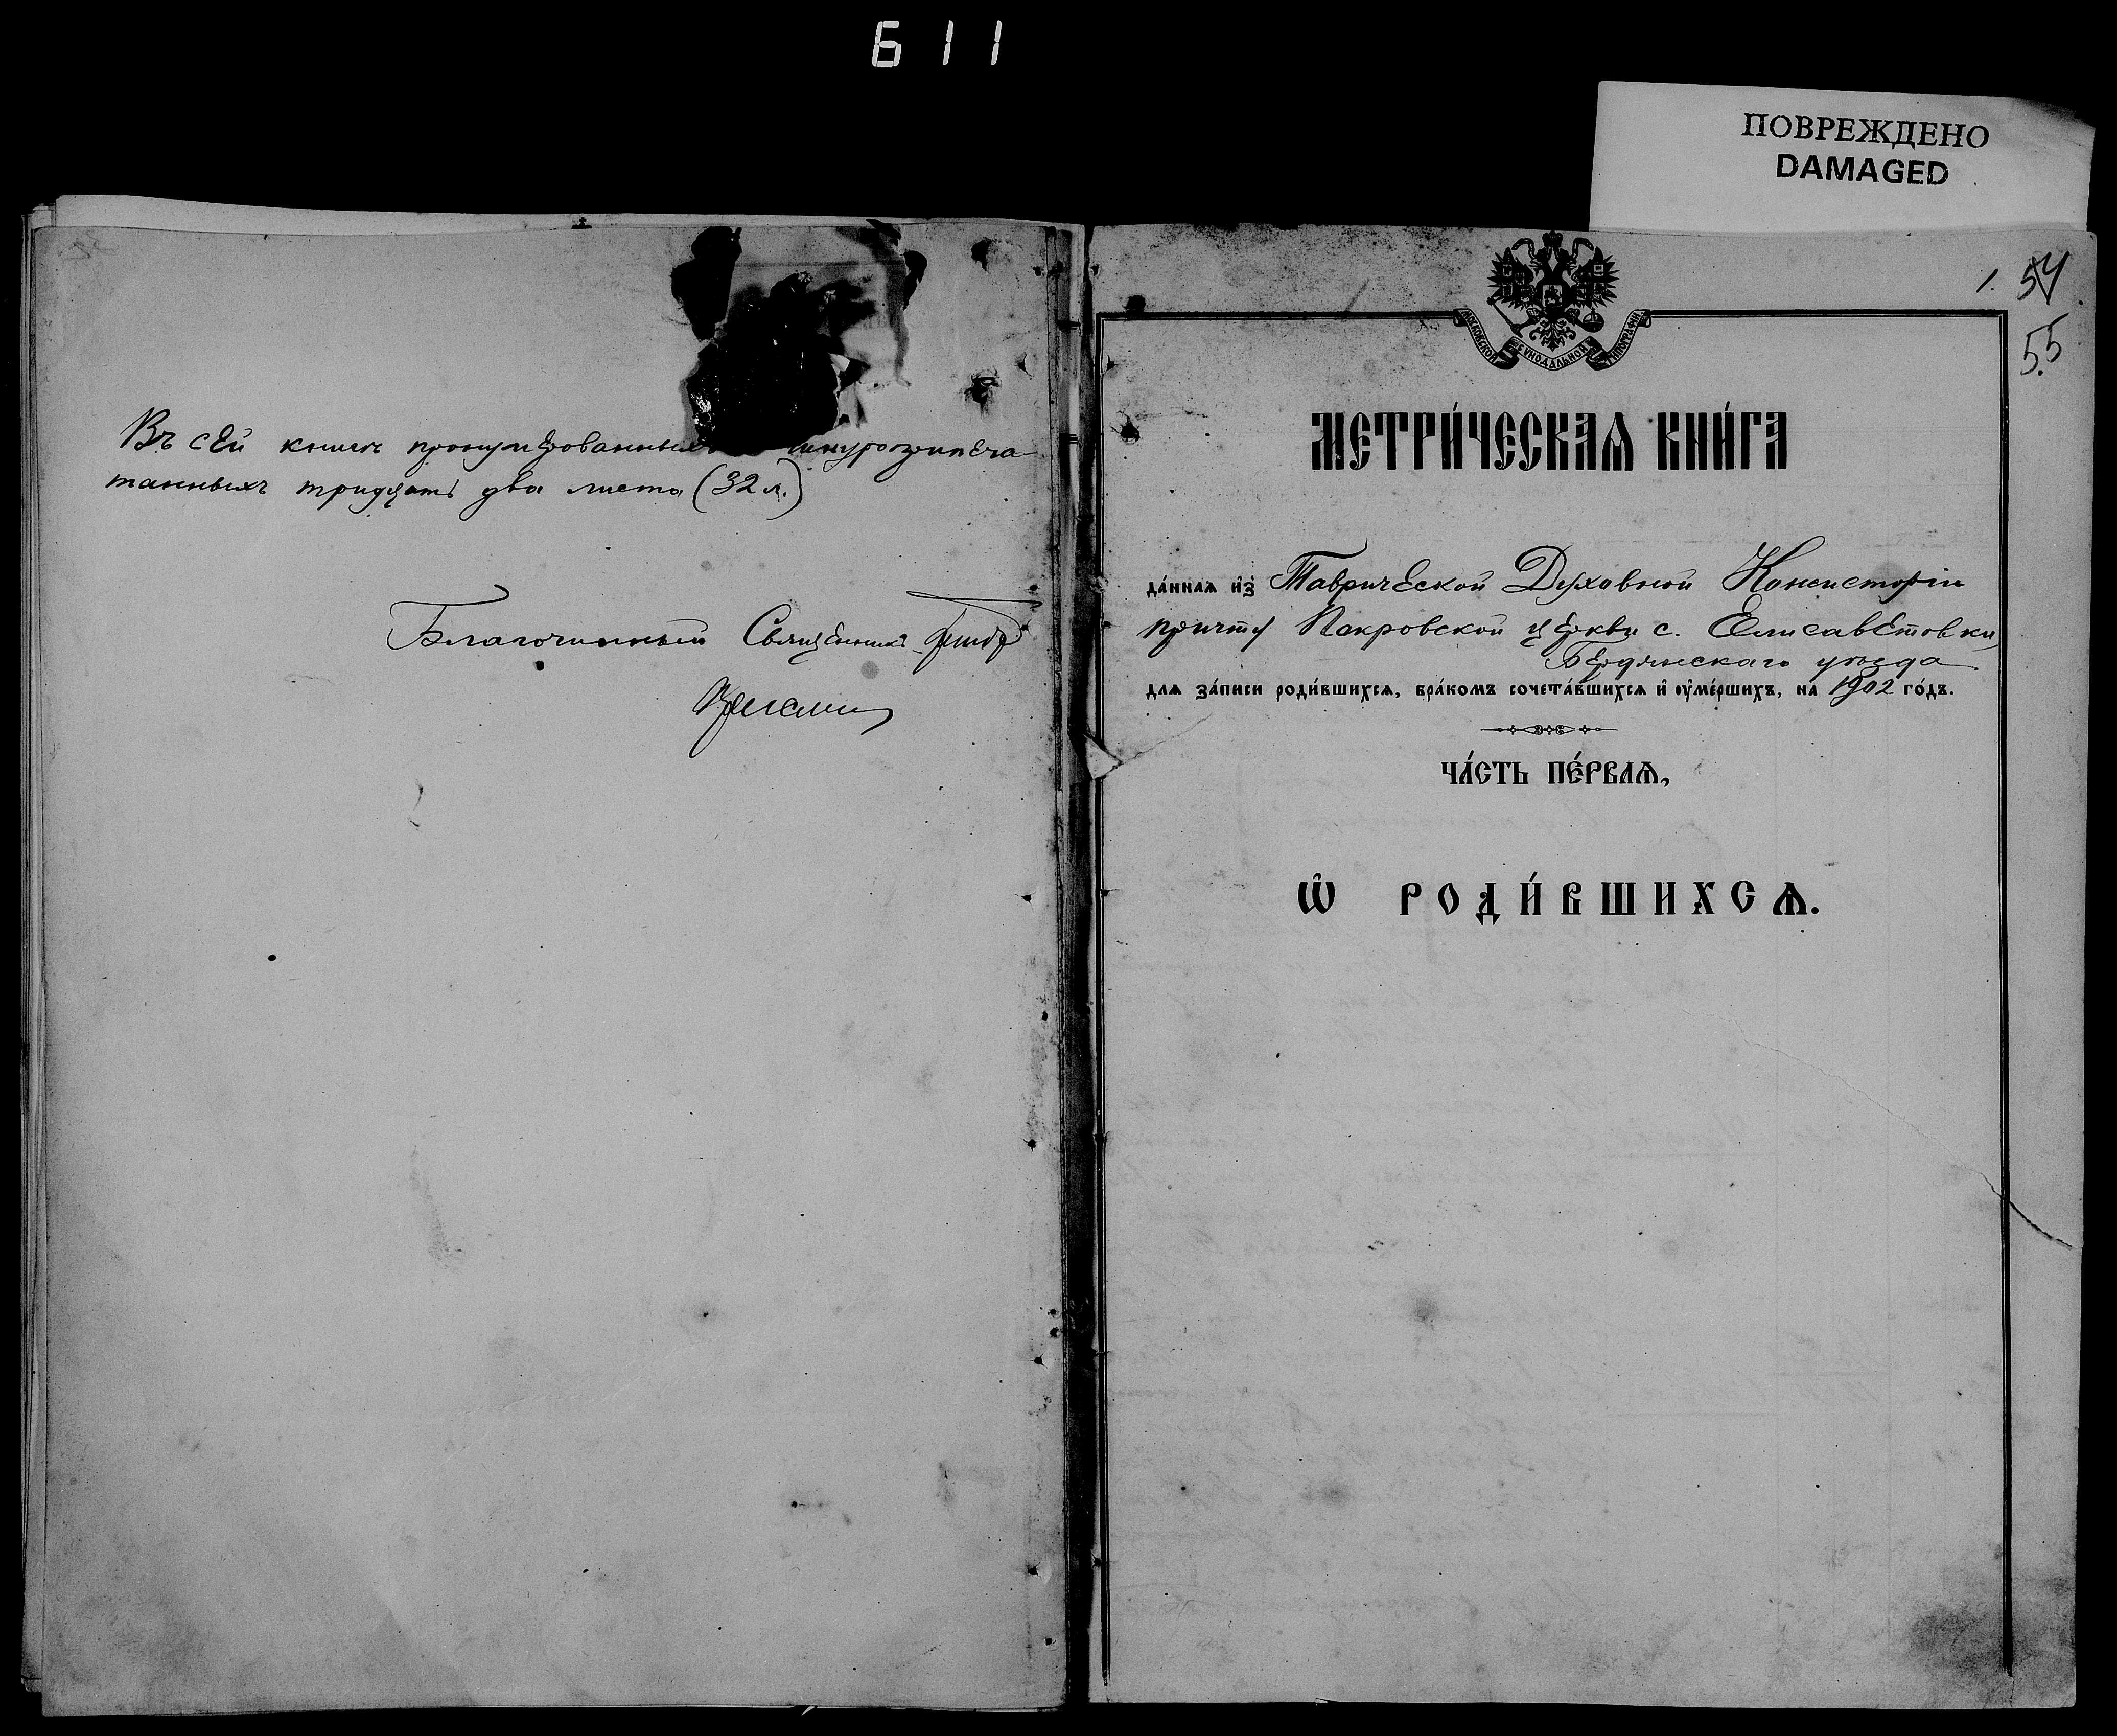 611
ПОВРЕЖДЕНО
DAMAGED
Въ сей книгѣ пронумерованныхъ шнуроприпеча-
танныхъ тридцать два листа (32 л.)
Благочинный Священникъ
1. 54
55
МОСКОВСКОЙ СѴНОДАЛЬНОЙ ТИПОГРАФІИ
МЕТРИ́ЧЕСКАѦ КНИ́ГА
да́ннаѧ и҆з̾ Таврической Духовной Консисторіи
причту Покровской церкви с. Елисаветовки,
Бердянскаго уѣзда
для за́писи роди́вшихсѧ, бра́комъ сочета́вшихсѧ и҆ ᲂу҆ме́ршихъ, на 1902 го́дъ.
ЧА́СТЬ ПЕ́РВАѦ,
Ѡ҆ РОДИ́ВШИХСѦ.